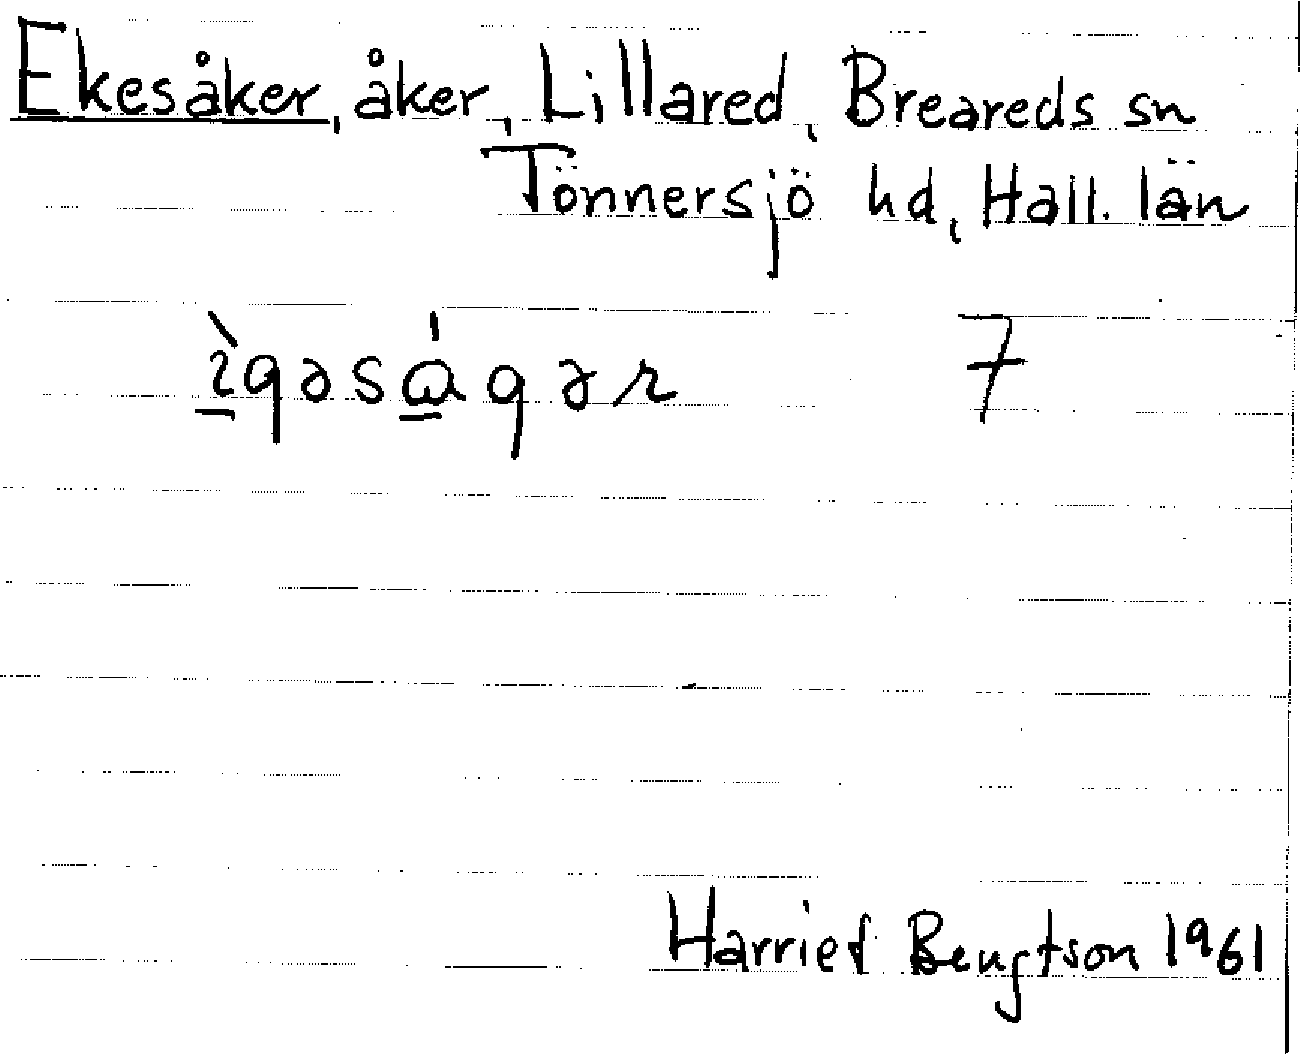 Ekesåker, åker, Lillared, Breareds sn
Tönnersjö hd, Hall. län
ìgəsågər 7
Harriet Bengtson 1961